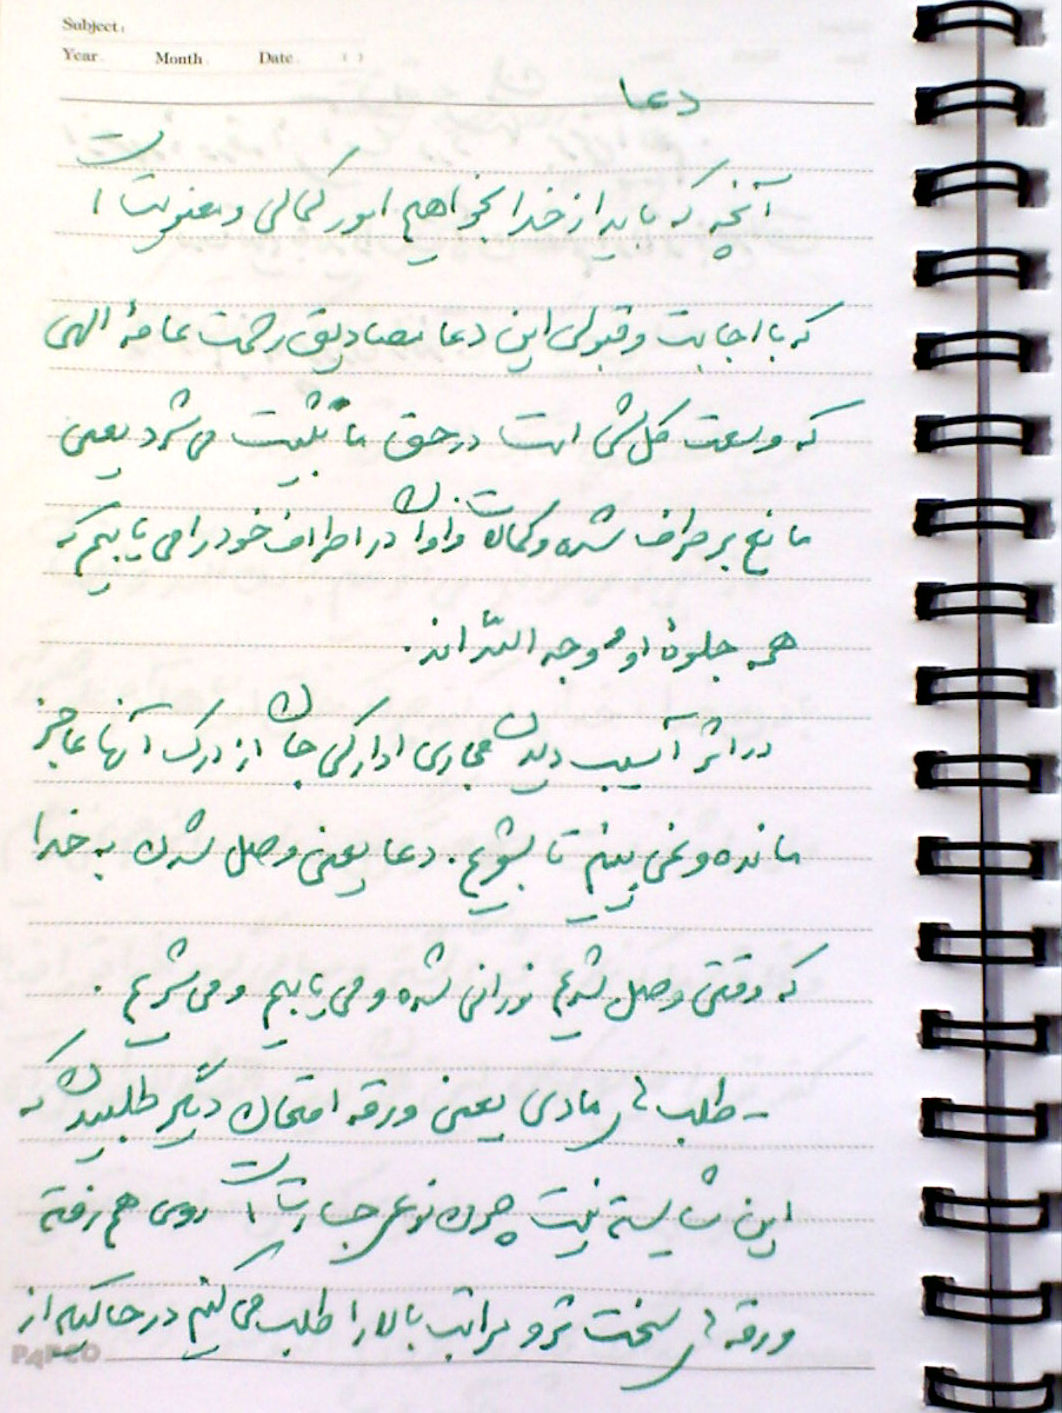 Subject:
Year. Month. Date. ( )
دعا
آنچه که باید از خدا بخواهیم امور کمالی و معنویت است
که با اجابت و قبولی این دعا مصادیق رحمت عامهٔ الهی
که وسعت کل شی است در حق ما تثبیت می شود یعنی
مانع برطرف شده و کمالات در اطراف خود را می یابیم که
همه جلوهٔ او و وجه اللّه اند.
در اثر آسیب دیدن مجاری ادراکی جان از درک آنها عاجز
مانده و نمی بینیم تا بشویم. دعا یعنی وصل شدن به خدا
که وقتی وصل شدیم نورانی شده و می یابیم و می شویم.
- طلب های مادی یعنی ورقه امتحان دیگر طلبیدن که
این شایسته نیست چون نوعی جسارت است روی هم رفته
ورقه های سخت تر و مراتب بالا را طلب می کنیم در حالیکه از
PAPCO